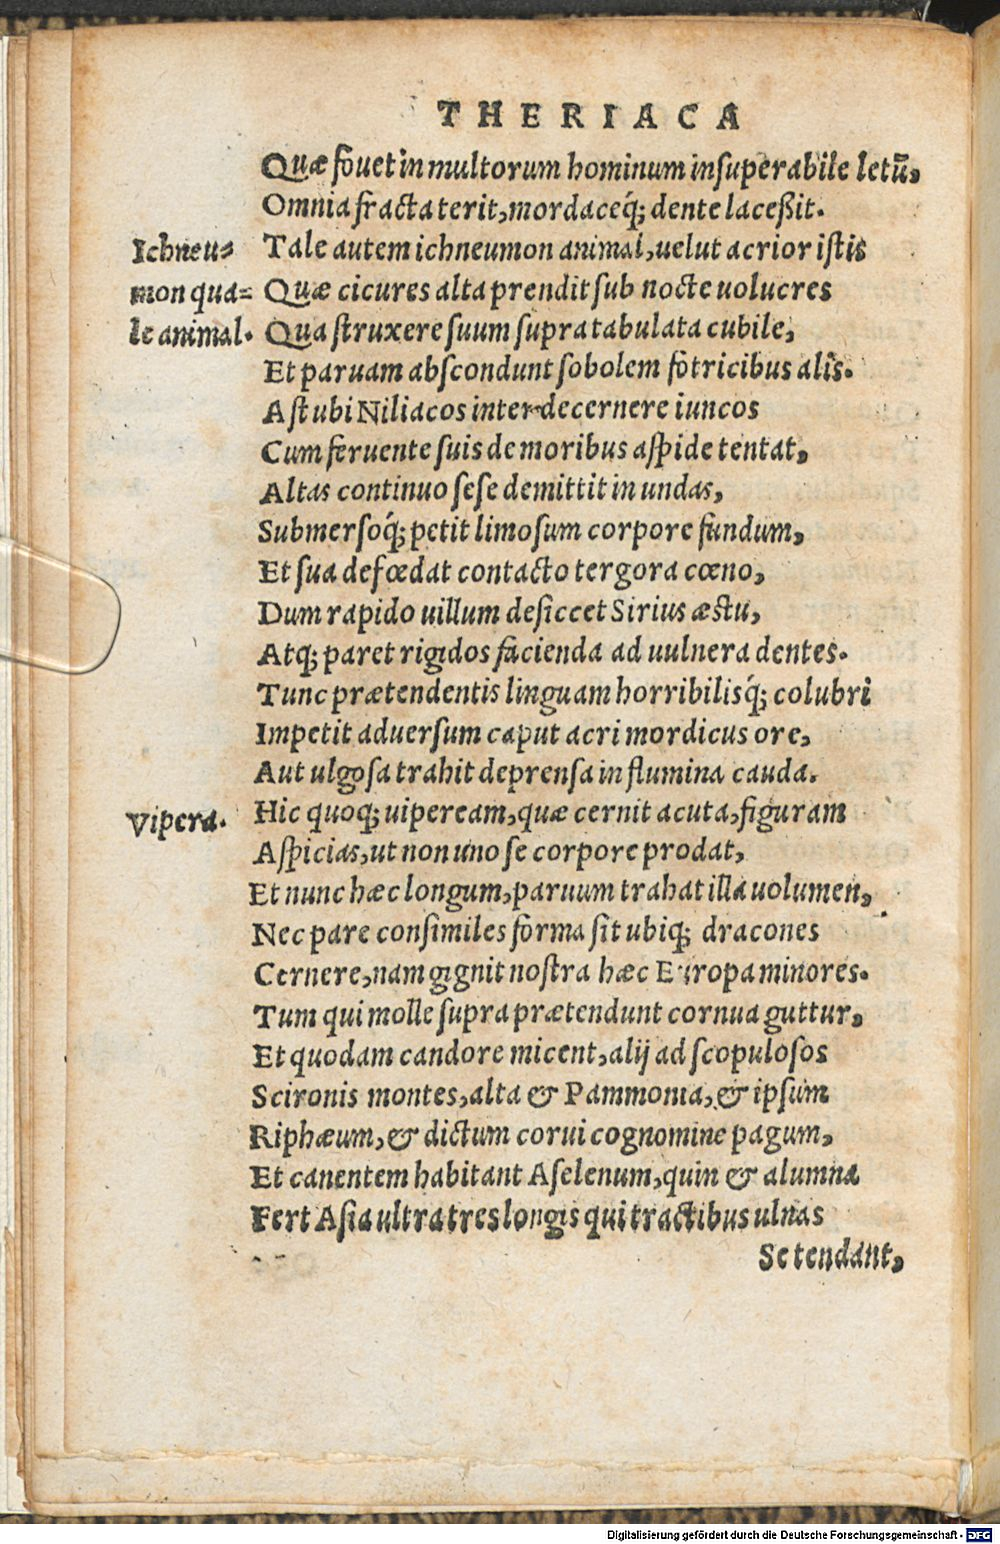 THERIACA
Quæ fouet in multorum hominum insuperabile letũ,
Omnia fracta terit, mordaceq́; dente laceßit.
Ichneu-
mon qua-
le animal.
Tale autem ichneumon animal, uelut acrior istis
Quæ cicures alta prendit sub nocte uolucres
Qua struxere suum supra tabulata cubile,
Et paruam abscondunt sobolem fotricibus alis.
Ast ubi Niliacos inter decernere iuncos
Cum feruente suis de moribus aspide tentat,
Altas continuo sese demittit in undas,
Submersoq́; petit limosum corpore fundum,
Et sua defœdat contacto tergora cœno,
Dum rapido uillum desiccet Sirius æstu,
Atq; paret rigidos facienda ad uulnera dentes.
Tunc prætendentis linguam horribilisq́; colubri
Impetit aduersum caput acri mordicus ore,
Aut ulgosa trahit deprensa in flumina cauda.
Vipera.
Hic quoq; uipeream, quæ cernit acuta, figuram
Aspicias, ut non uno se corpore prodat,
Et nunc hæc longum, paruum trahat illa uolumen,
Nec pare consimiles forma sit ubiq; dracones
Cernere, nam gignit nostra hæc Europa minores.
Tum qui molle supra prætendunt cornua guttur,
Et quodam candore micent, alij ad scopulosos
Scironis montes, alta & Pammonia, & ipsum
Riphæum, & dictum corui cognomine pagum,
Et canentem habitant Aselenum, quin & alumna
Fert Asia ultra tres longis qui tractibus ulnas
Se tendant,
Digitalisierung gefördert durch die Deutsche Forschungsgemeinschaft - DFG